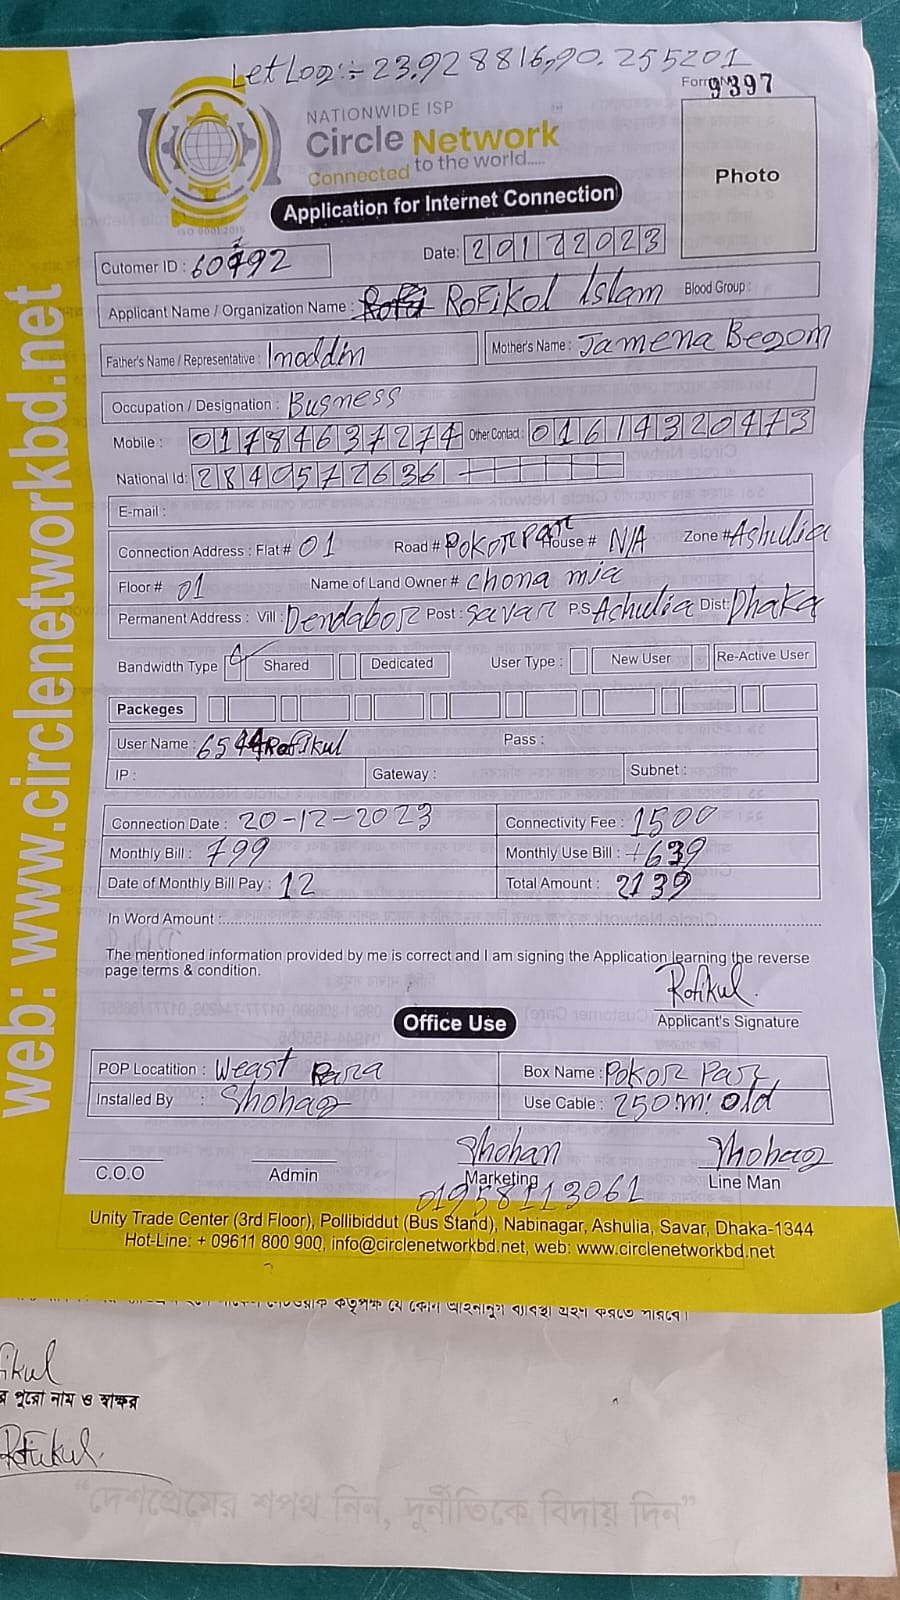 Let Log:- 23.928816,90.255201
Form No
9397
NATIONWIDE ISP
Circle Network
Connected to the world.....
ISO 9001:2015
Photo
Application for Internet Connection
Cutomer ID : 60792
Date: 20122023
Applicant Name / Organization Name : Rofikol Islam Blood Group :
Father's Name / Representative : Inoddin Mother's Name : Jamena Begom
Occupation / Designation : Busness
Mobile : 01784637274 Other Contact : 01614320473
National Id: 2840572636
E-mail :
Connection Address : Flat # 01 Road # Pokor Par House # N/A Zone # Ashulia
Floor # 01 Name of Land Owner # Chona mia
Permanent Address : Vill : Dendabor Post : Savar P.S Ashulia Dist: Dhaka
Bandwidth Type Shared Dedicated User Type : New User Re-Active User
Packeges
User Name : 6544Rofikul Pass :
IP : Gateway : Subnet :
Connection Date : 20-12-2023 Connectivity Fee : 1500
Monthly Bill : 799 Monthly Use Bill : +639
Date of Monthly Bill Pay : 12 Total Amount : 2139
In Word Amount :
The mentioned information provided by me is correct and I am signing the Application learning the reverse
page terms & condition.
Rofikul
Applicant's Signature
Office Use
POP Locatition : Weast Para Box Name : Pokor Par
Installed By : Shohag Use Cable : 250 m: old
Shohan Shohag
C.O.O Admin Marketing Line Man
01958113061
Unity Trade Center (3rd Floor), Pollibiddut (Bus Stand), Nabinagar, Ashulia, Savar, Dhaka-1344
Hot-Line: + 09611 800 900, info@circlenetworkbd.net, web: www.circlenetworkbd.net
web: www.circlenetworkbd.net
কর্তৃপক্ষ যে কোন আইনানুগ ব্যবস্থা গ্রহণ করতে পারবে।
ikul
র পুরো নাম ও স্বাক্ষর
Rofikul
“দেশপ্রেমের শপথ নিন, দুর্নীতিকে বিদায় দিন”